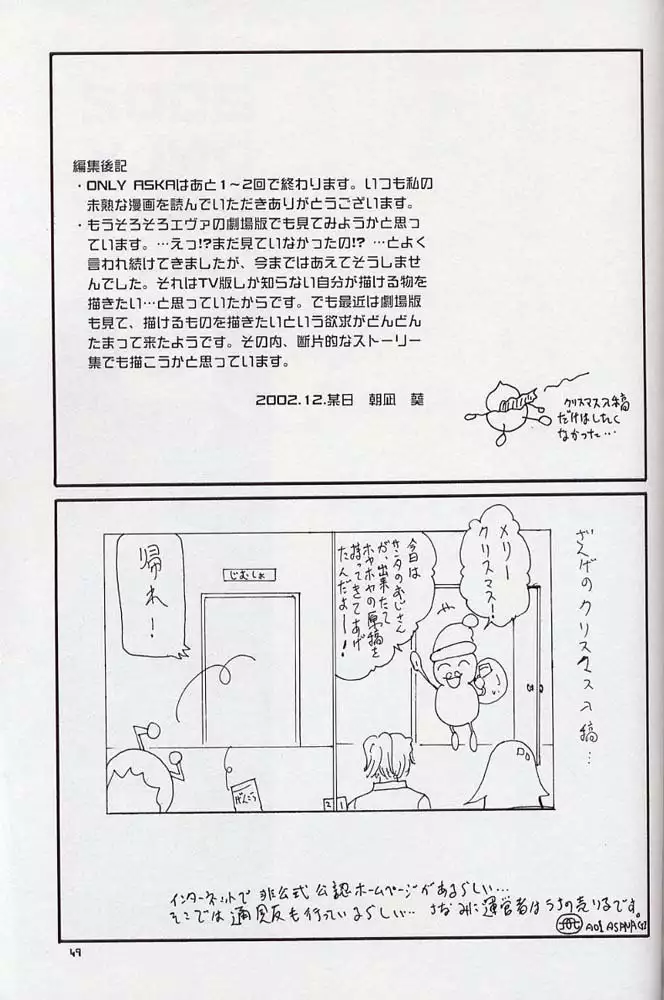 編集後記
・ONLY ASKAはあと1～2回で終わります。いつも私の
未熟な漫画を読んでいただきありがとうございます。
・もうそろそろエヴァの劇場版でも見てみようかと思っ
ています。…えっ!?まだ見ていなかったの!? …とよく
言われ続けてきましたが、今まではあえてそうしませ
んでした。それはTV版しか知らない自分が描ける物を
描きたい…と思っていたからです。でも最近は劇場版
も見て、描けるものを描きたいという欲求がどんどん
たまって来たようです。その内、断片的なストーリー
集でも描こうかと思っています。
2002.12.某日 朝凪 葵
クリスマス入稿
だけはしたく
なかった…
ざんげのクリスマス入稿…
メリー
クリスマス！
今日は
サンタのおじさん
が、出来たて
ホヤホヤの原稿を
持ってきてあげ
たんだよー！
1
じむしょ
帰れ！
げんこう
2
インターネットで 非公式 公認 ホームページがあるらしい…
そこでは通販も行っているらしい… ちなみに運営者はうちの売り子です。
AOI ASANAGI
49